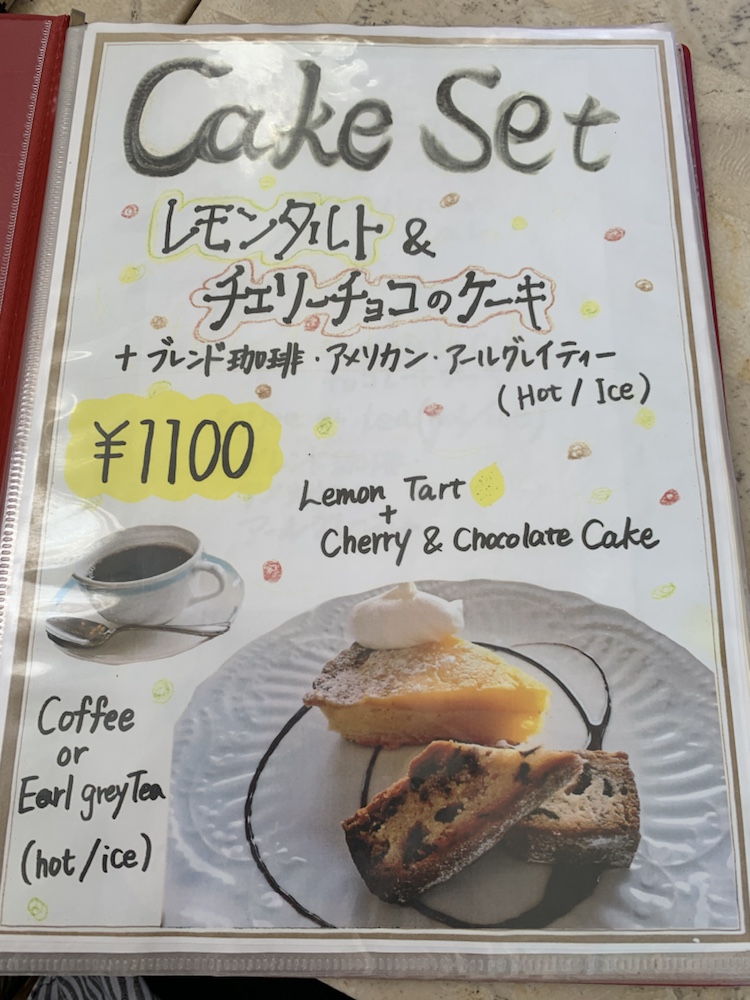 Cake Set
レモンタルト &
チェリーチョコのケーキ
+ ブレンド珈琲・アメリカン・アールグレイティー
(Hot / Ice)
¥1100
Lemon Tart
+
Cherry & Chocolate Cake
Coffee
or
Earl grey Tea
(hot/ice)